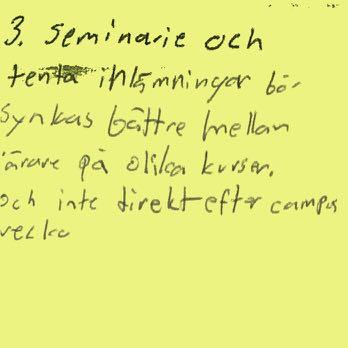 3. seminarie och
tenta inlämningar bör
synkas bättre mellan
lärare på olika kurser.
och inte direkt efter campus
vecka